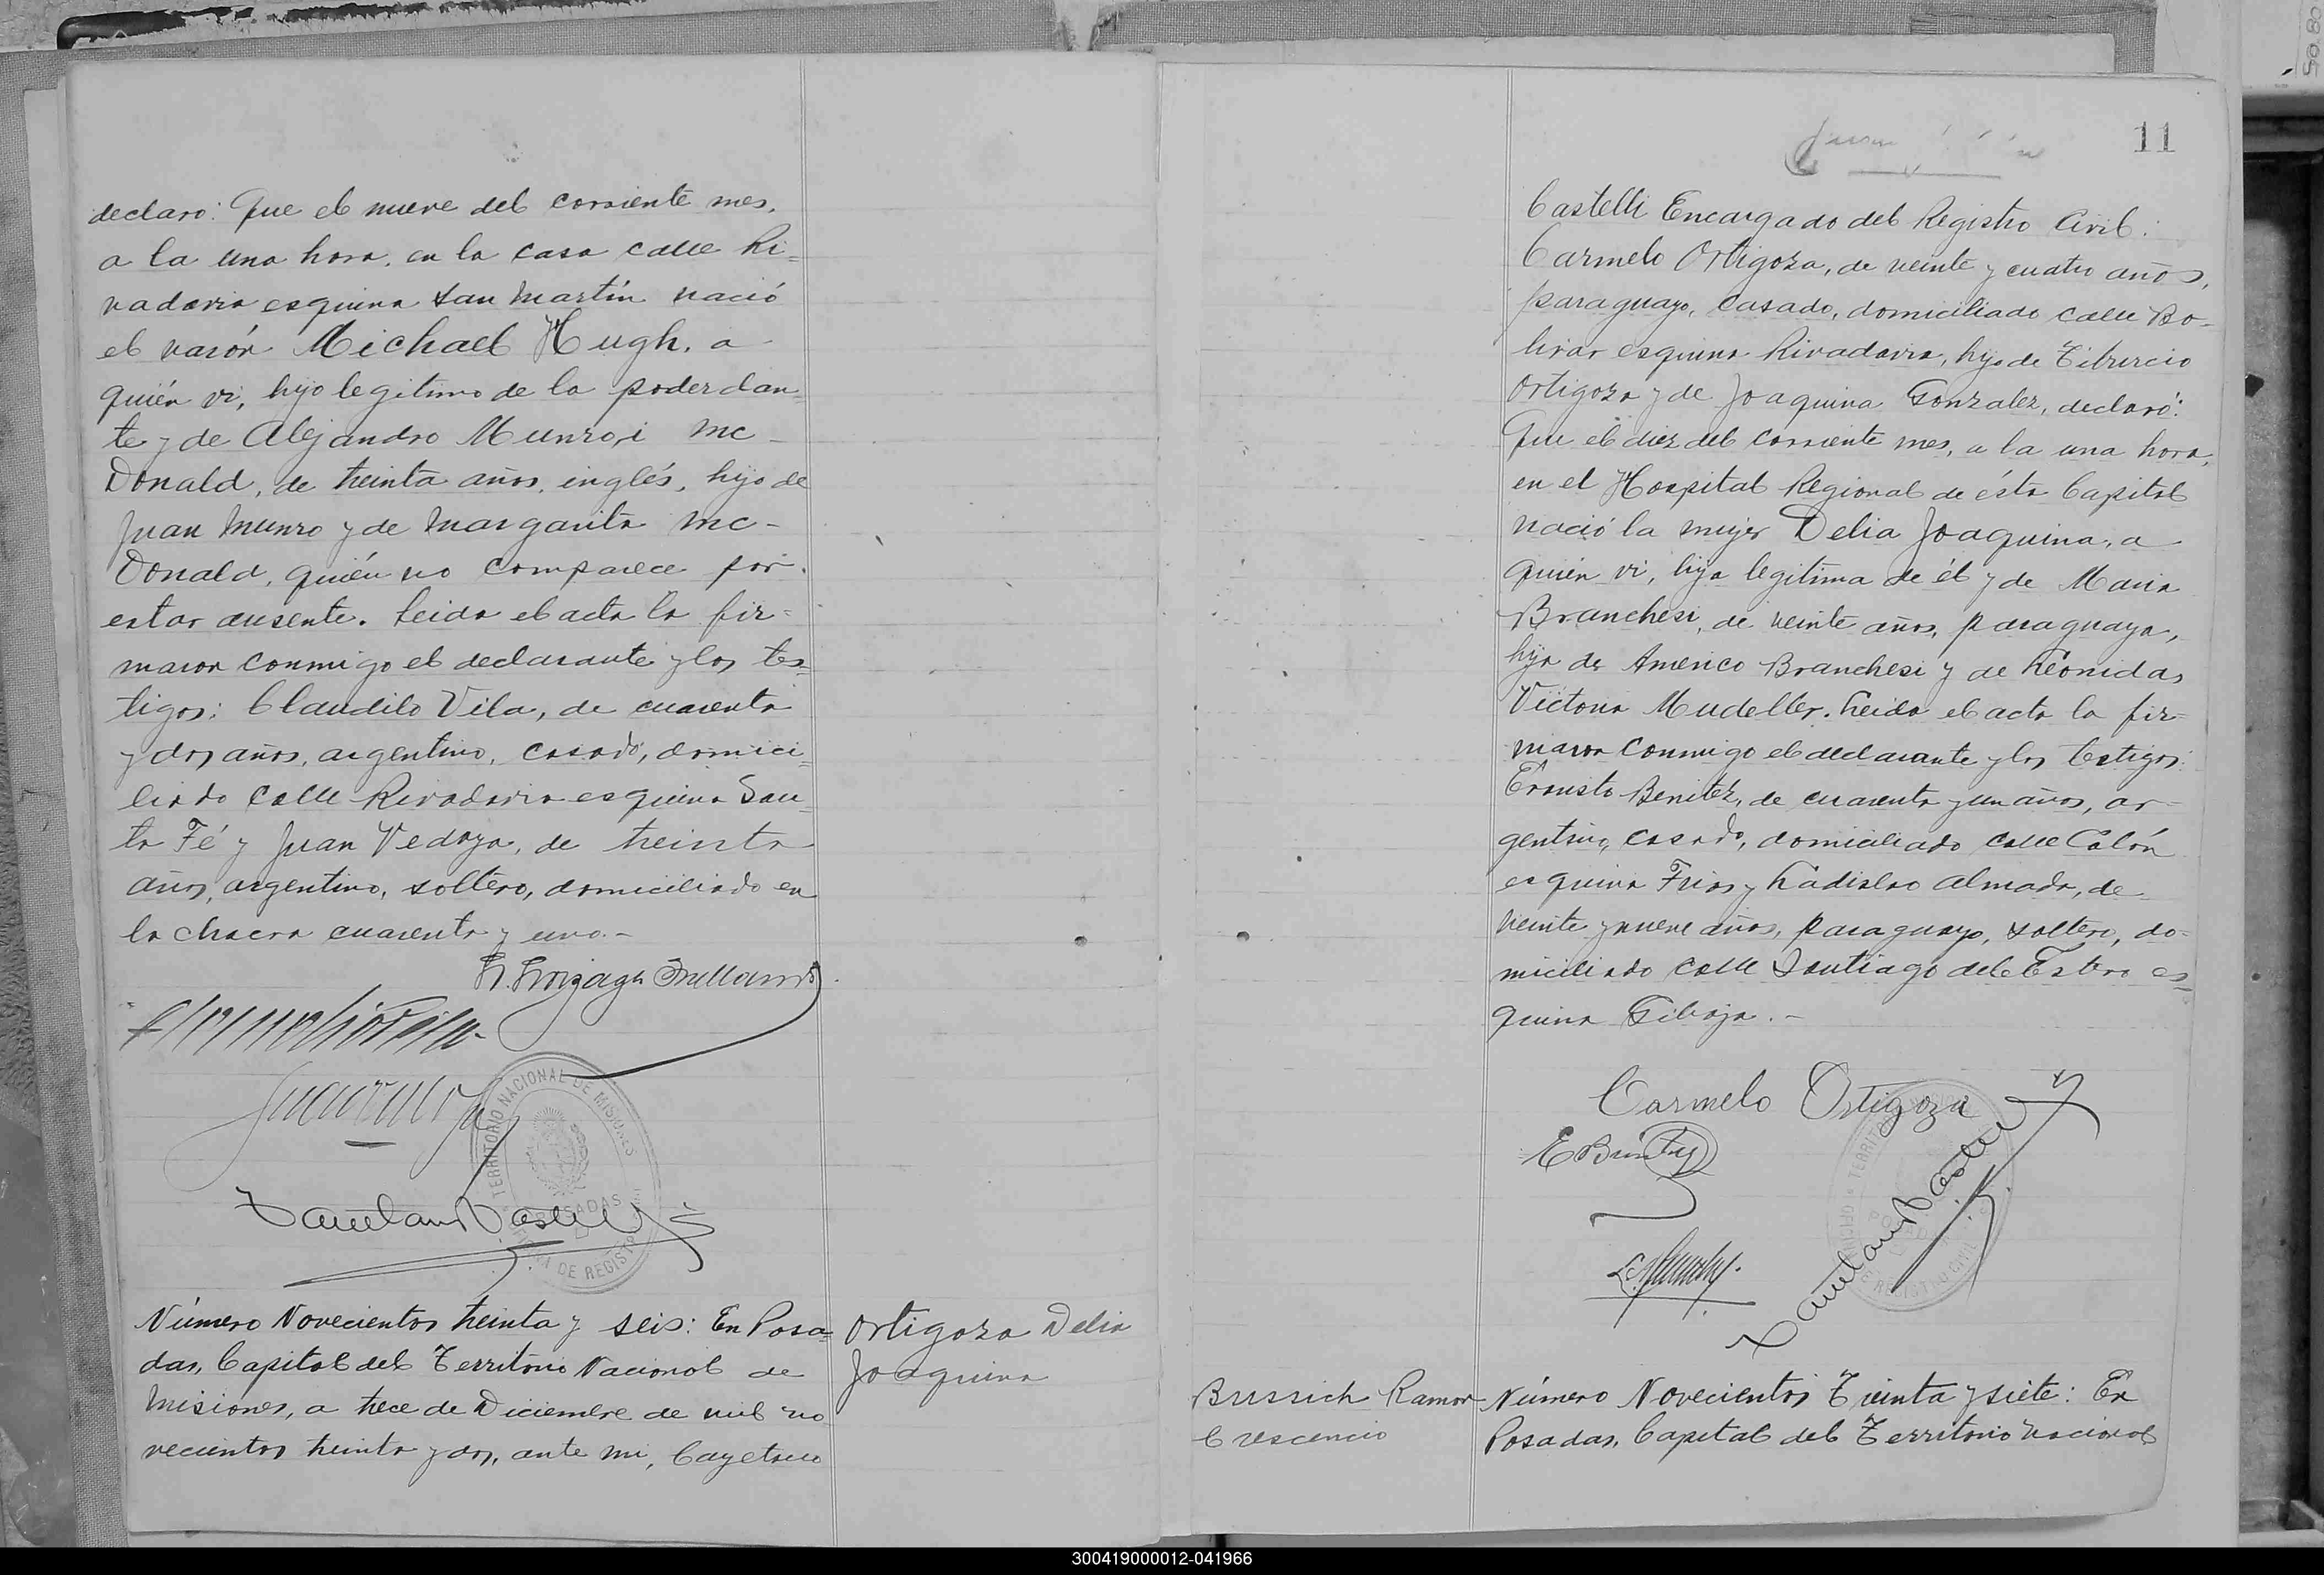 declaro: Que el nueve del corriente mes,
a la una hora, en la casa calle Ri=
vadavia esquina San Martín nació
el varón Michael Hugh, a
quién vi, hijo legitimo de la poderdan=
te y de Alejandro Munro, i Mc-
Donald, de treinta años, inglés, hijo de
Juan Munro y de Margarita Mc-
Donald, quién no comparece por
estar ausente. Leida el acta la fir=
maron conmigo el declarante y los tes=
tigos: Claudilo Vila, de cuarenta
y dos años, argentino, casado, domici=
liado calle Rivadavia esquina San=
ta Fé y Juan Vedoya, de treinta
años, argentino, soltero, domiciliado en
la chacra cuarenta y uno.-
TERRITORIO NACIONAL DE MISIONES
POSADAS
OFICINA DE REGISTRO
Número Novecientos treinta y seis: En Posa=
das, Capital del Territorio Nacional de
Misiones, a trece de Diciembre de mil no
vecientos treinta y dos, ante mi, Cayetano
Ortigoza Delia
Joaquina
11
Castelli Encargado del Registro Civil:
Carmelo Ortigoza, de veinte y cuatro años,
paraguayo, casado, domiciliado calle Bo-
livar esquina Rivadavia, hijo de Tiburcio
Ortigoza y de Joaquina Gonzalez, declaró:
Que el diez del corriente mes, a la una hora,
en el Hospital Regional de ésta Capital
nació la mujer Delia Joaquina, a
quién vi, hija legitima de él y de Maria
Branchesi, de veinte años, paraguaya,
hija de Americo Branchesi y de Leonidas
Victoria Mudeller. Leida el acta la fir=
maron conmigo el declarante y los testigos:
Erausto Benitez, de cuarenta y un años, ar=
gentino, casado, domiciliado calle Colón
esquina Frias y Ladislao Almada, de
veinte y nueve años, paraguayo, soltero, do=
miciliado calle Santiago del Estero es=
quina Gibaja.-
Carmelo Ortigoza
Brussich Ramon
Crescencio
Número Novecientos Treinta y siete: En
Posadas, Capital del Territorio Nacional
300419000012-041966